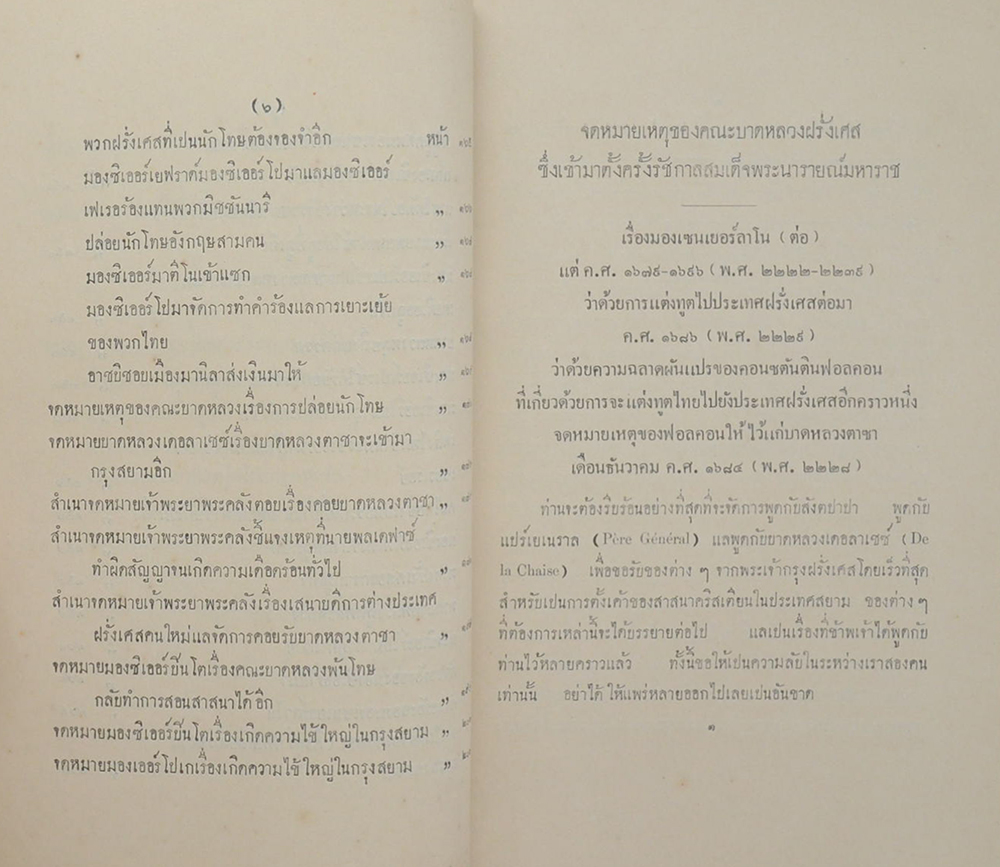 (๖)
พวกฝรั่งเศสที่เปนนักโทษต้องของจำอีก หน้า
มองซิเออร์เยฟราค์มองซิเออร์โปมาแลมองซิเออร์
เฟเรอร้องแทนพวกมิชชันนารี ,,
ปล่อยนักโทษอังกฤษสามคน ,,
มองซิเออร์มาติโนเข้าแซก ,,
มองซิเออร์โปมาจัดการทำคำร้องแลการเยาะเย้ย
ของพวกไทย ,,
อาชบิชอบเมืองมานิลาส่งเงินมาให้ ,,
จดหมายเหตุของคณะบาดหลวงเรื่องการปล่อยนักโทษ ,,
จดหมายบาดหลวงเดอลาเชซ์เรื่องบาดหลวงตาชาจะเข้ามา
กรุงสยามอีก ,,
สำเนาจดหมายเจ้าพระยาพระคลังตอบเรื่องคอยบาดหลวงตาชา ,,
สำเนาจดหมายเจ้าพระยาพระคลังชี้แจงเหตุที่นายพลเดฟาซ์
ทำผิดสัญญาจนเกิดความเดือดร้อนทั่วไป ,,
สำเนาจดหมายเจ้าพระยาพระคลังเรื่องเสนาบดีการต่างประเทศ
ฝรั่งเศสคนใหม่แลจัดการคอยรับบาดหลวงตาชา ,,
จดหมายมองซิเออร์ปินโตเรื่องคณะบาดหลวงพ้นโทษ
กลับทำการสอนสาสนาได้อีก ,,
จดหมายมองซิเออร์ปินโตเรื่องเกิดความไข้ใหญ่ในกรุงสยาม ,,
จดหมายมองเออร์โปเกเรื่องเกิดความไข้ใหญ่ในกรุงสยาม ,,
จดหมายเหตุของคณะบาดหลวงฝรั่งเศส
ซึ่งเข้ามาตั้งครั้งรัชกาลสมเด็จพระนารายณ์มหาราช
เรื่องมองเซนเยอร์ลาโน (ต่อ)
แต่ ค.ศ. ๑๖๗๙-๑๖๙๖ (พ.ศ. ๒๒๒๒-๒๒๓๙)
ว่าด้วยการแต่งทูตไปประเทศฝรั่งเศสต่อมา
ค.ศ. ๑๖๘๖ (พ.ศ. ๒๒๒๙)
ว่าด้วยความฉลาดผันแปรของคอนซตันตินฟอลคอน
ที่เกี่ยวด้วยการจะแต่งทูตไทยไปยังประเทศฝรั่งเศสอีกคราวหนึ่ง
จดหมายเหตุของฟอลคอนให้ไว้แก่บาดหลวงตาชา
เดือนธันวาคม ค.ศ. ๑๖๘๕ (พ.ศ. ๒๒๒๘)
ท่านจะต้องรีบร้อนอย่างที่สุดที่จะจัดการพูดกับสังตปาปา พูดกับ
แปร์เยเนราล (Père Général) แลพูดกับบาดหลวงเดอลาเชซ์ (De
la Chaise) เพื่อขอรับของต่าง ๆ จากพระเจ้ากรุงฝรั่งเศสโดยเร็วที่สุด
สำหรับเปนการตั้งเค้าของสาสนาคริสเตียนในประเทศสยาม ของต่าง ๆ
ที่ต้องการเหล่านี้จะได้บรรยายต่อไป แลเปนเรื่องที่ข้าพเจ้าได้พูดกับ
ท่านไว้หลายคราวแล้ว ทั้งนี้ขอให้เปนความลับในระหว่างเราสองคน
เท่านั้น อย่าได้ให้แพร่หลายออกไปเลยเปนอันขาด
๑